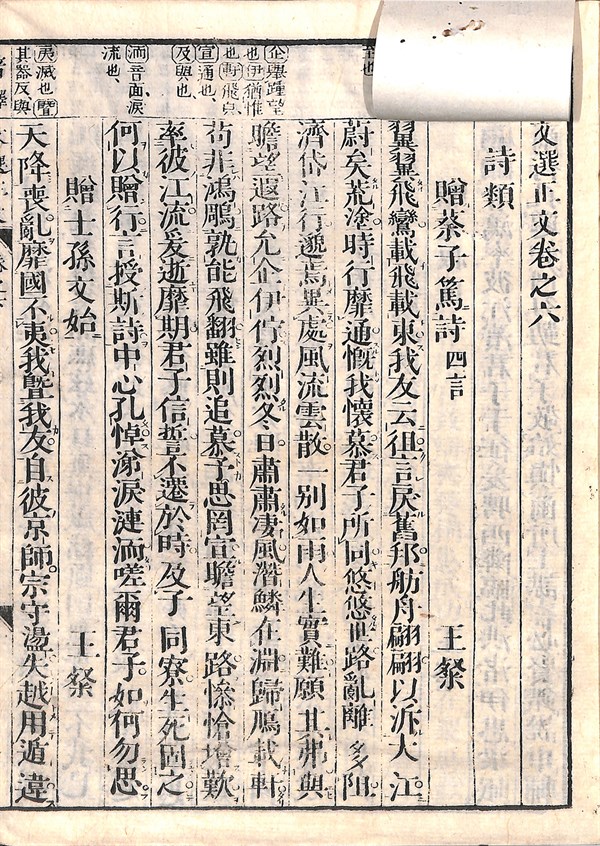 文選正文卷之六
詩類
贈蔡子篤詩 四言 王粲
翼翼飛鸞載飛載東我友云徂言戾舊邦舫舟翩翩以泝大江
蔚矣荒塗時行靡通慨我懷慕君子所同悠悠世路亂離多阻
濟岱江行邈焉異處風流雲散一別如雨人生實難願其弗與
瞻望遐路允企伊佇烈烈冬日肅肅凄風潛鱗在淵歸鴈載軒
苟非鴻鵰孰能飛翻雖則追慕予思罔宣瞻望東路慘愴增歎
率彼江流爰逝靡期君子信誓不遷於時及子同寮生死固之
何以贈行言授斯詩中心孔悼涕淚漣洏嗟爾君子如何勿思
贈士孫文始 王粲
天降喪亂靡國不夷我暨我友自彼京師宗守盪失越用遁違
也
企舉踵望
也伊猶惟
也軒飛皃
宣通也、
及與也、
洏音面淚
流也、
夷滅也暨
其器反與